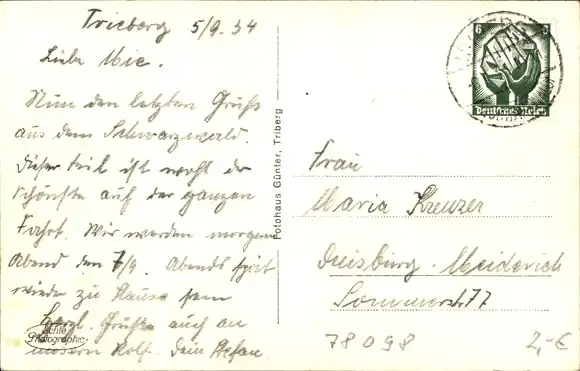 Trieberg 5/9. 34
Liebe Mie.
Nun den letzten Gruß
aus dem Schwarzwald.
Dieser teil ist wohl der
schönste auf der ganzen
Fahrt. Wir werden morgen
Abend den 7/9. Abends spät
wieder zu Hause sein
Herzl. Grüße auch an
unsern Rolf. Dein Stefan
Echte
Photographie
Fotohaus Günter, Triberg
6 6
Deutsches Reich
Frau
Maria Kreuzer
Duisburg-Meiderich
Sommerstr. 77
78098 2,-€